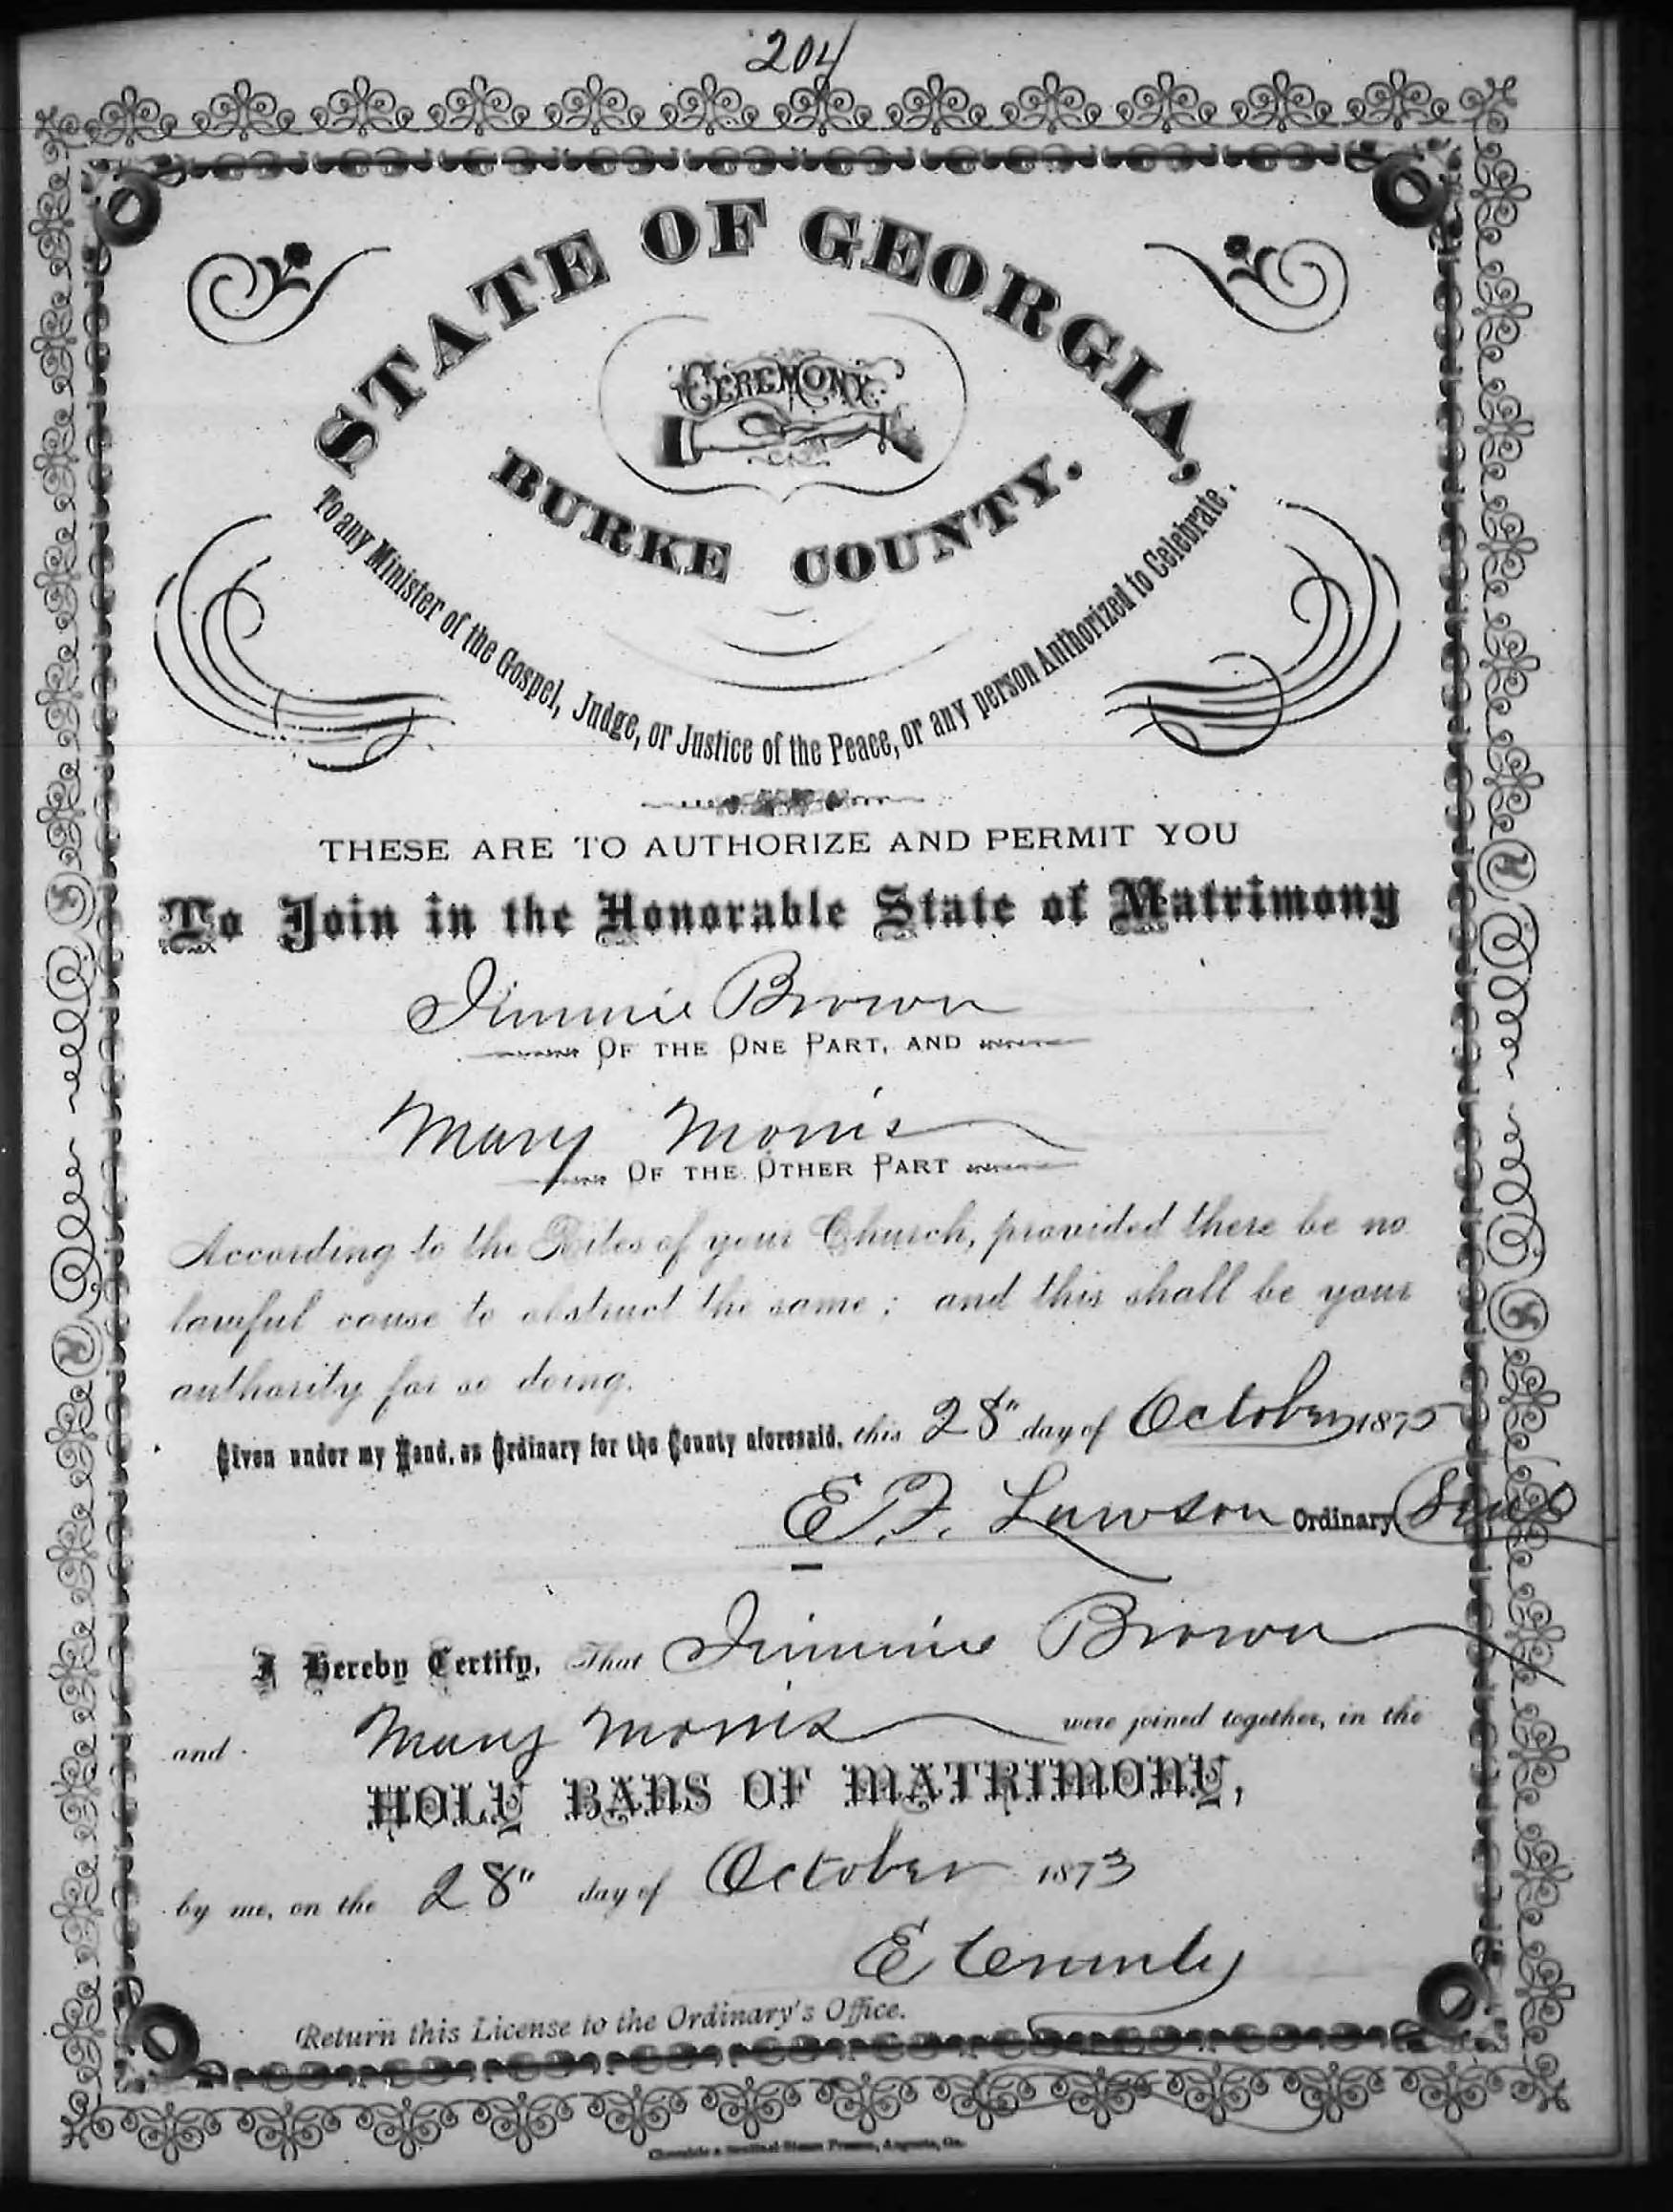 204
STATE OF GEORGIA,
CEREMONY
BURKE COUNTY.
To any Minister of the Gospel, Judge, or Justice of the Peace, or any person Authorized to Celebrate.
THESE ARE TO AUTHORIZE AND PERMIT YOU
To Join in the Honorable State of Matrimony
Jimmie Brown
OF THE ONE PART, AND
Mary Morris
OF THE OTHER PART
According to the Rites of your Church, provided there be no
lawful cause to obstruct the same; and this shall be your
authority for so doing.
Given under my Hand, as Ordinary for the County aforesaid, this 28" day of October 187
E. F. Lawson Ordinary Seal
I Hereby Certify, That Jimmie Brown
and Mary Morris were joined together, in the
HOLY BANS OF MATRIMONY,
by me, on the 28" day of October 1873
E
Return this License to the Ordinary's Office.
Chronicle & Sentinel Steam Presses, Augusta, Ga.